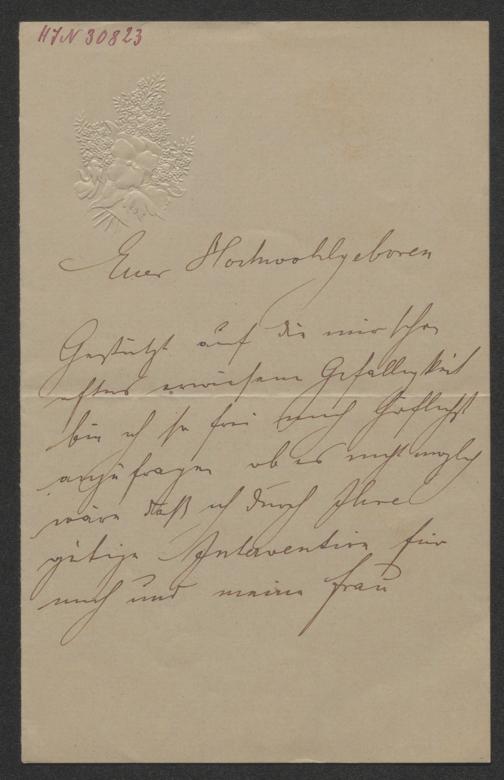 HIN 30823
Euer Hochwohlgeboren
Gestützt auf die mir schon
öfters erwiesene Gefälligkeit
bin ich so frei mich höflichst
anzufragen ob es nicht möglich
wäre daß ich durch Ihre
gütige Intervention für
mich und meine Frau